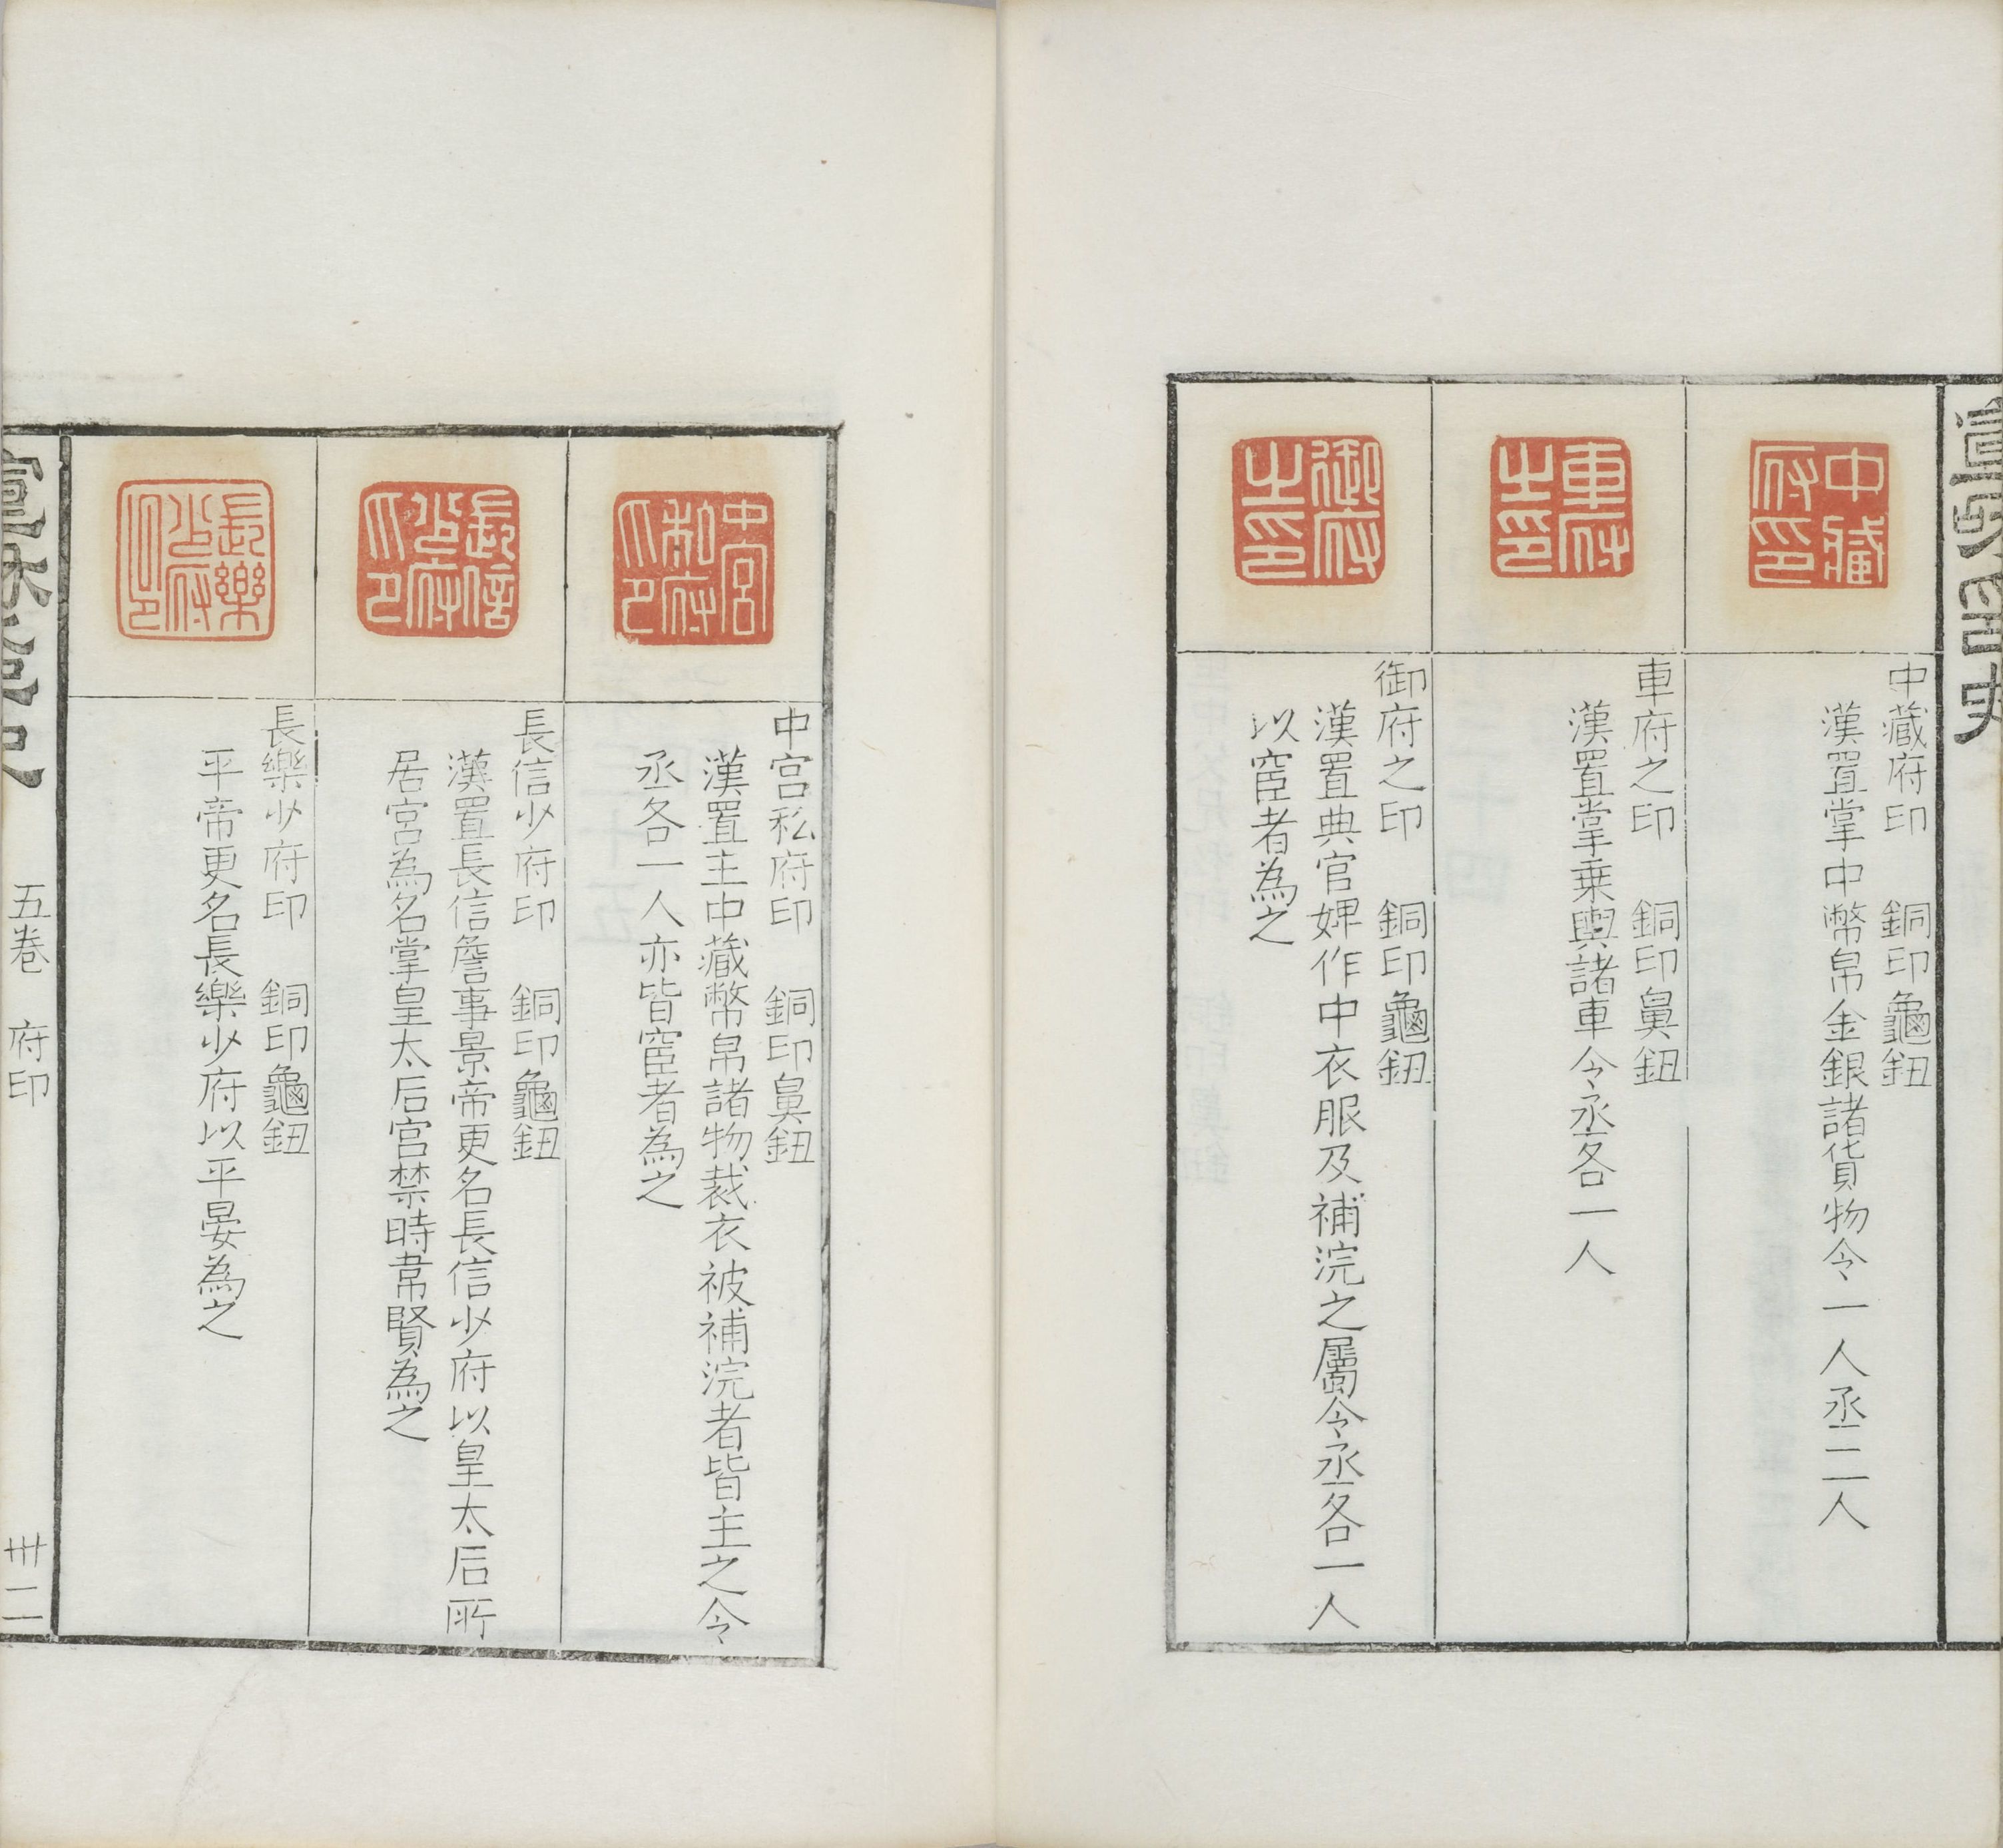 中藏府印
中藏府印　銅印龜鈕
漢置掌中幣帛金銀諸貨物令一人丞二人
車府之印
車府之印　銅印鼻鈕
漢置掌乗輿諸車令丞各一人
御府之印
御府之印　銅印龜鈕
漢置典官婢作中衣服及補浣之屬令丞各一人
以宦者為之
中宮私府印
中宮私府印　銅印鼻鈕
漢置主中藏幣帛諸物裁衣被補浣者皆主之令
丞各一人亦皆宦者為之
長信少府印
長信少府印　銅印龜鈕
漢置長信詹事景帝更名長信少府以皇太后所
居宮為名掌皇太后宮禁時韋賢為之
長樂少府印
長樂少府印　銅印龜鈕
平帝更名長樂少府以平晏為之
五卷　府印　卅二